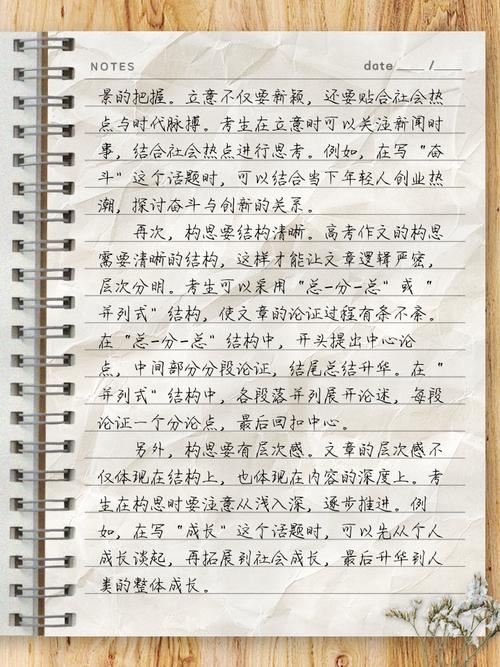 NOTES
date ____ / ____
景的把握。立意不仅要新颖，还要贴合社会热
点与时代脉搏。考生在立意时可以关注新闻时
事，结合社会热点进行思考。例如，在写“奋
斗”这个话题时，可以结合当下年轻人创业热
潮，探讨奋斗与创新的关系。
再次，构思要结构清晰。高考作文的构思
需要清晰的结构，这样才能让文章逻辑严密，
层次分明。考生可以采用“总-分-总”或“
并列式”结构，使文章的论证过程有条不紊。
在“总-分-总”结构中，开头提出中心论
点，中间部分分段论证，结尾总结升华。在“
并列式”结构中，各段落并列展开论述，每段
论证一个分论点，最后回扣中心。
另外，构思要有层次感。文章的层次感不
仅体现在结构上，也体现在内容的深度上。考
生在构思时要注意从浅入深，逐步推进。例
如，在写“成长”这个话题时，可以先从个人
成长谈起，再拓展到社会成长，最后升华到人
类的整体成长。